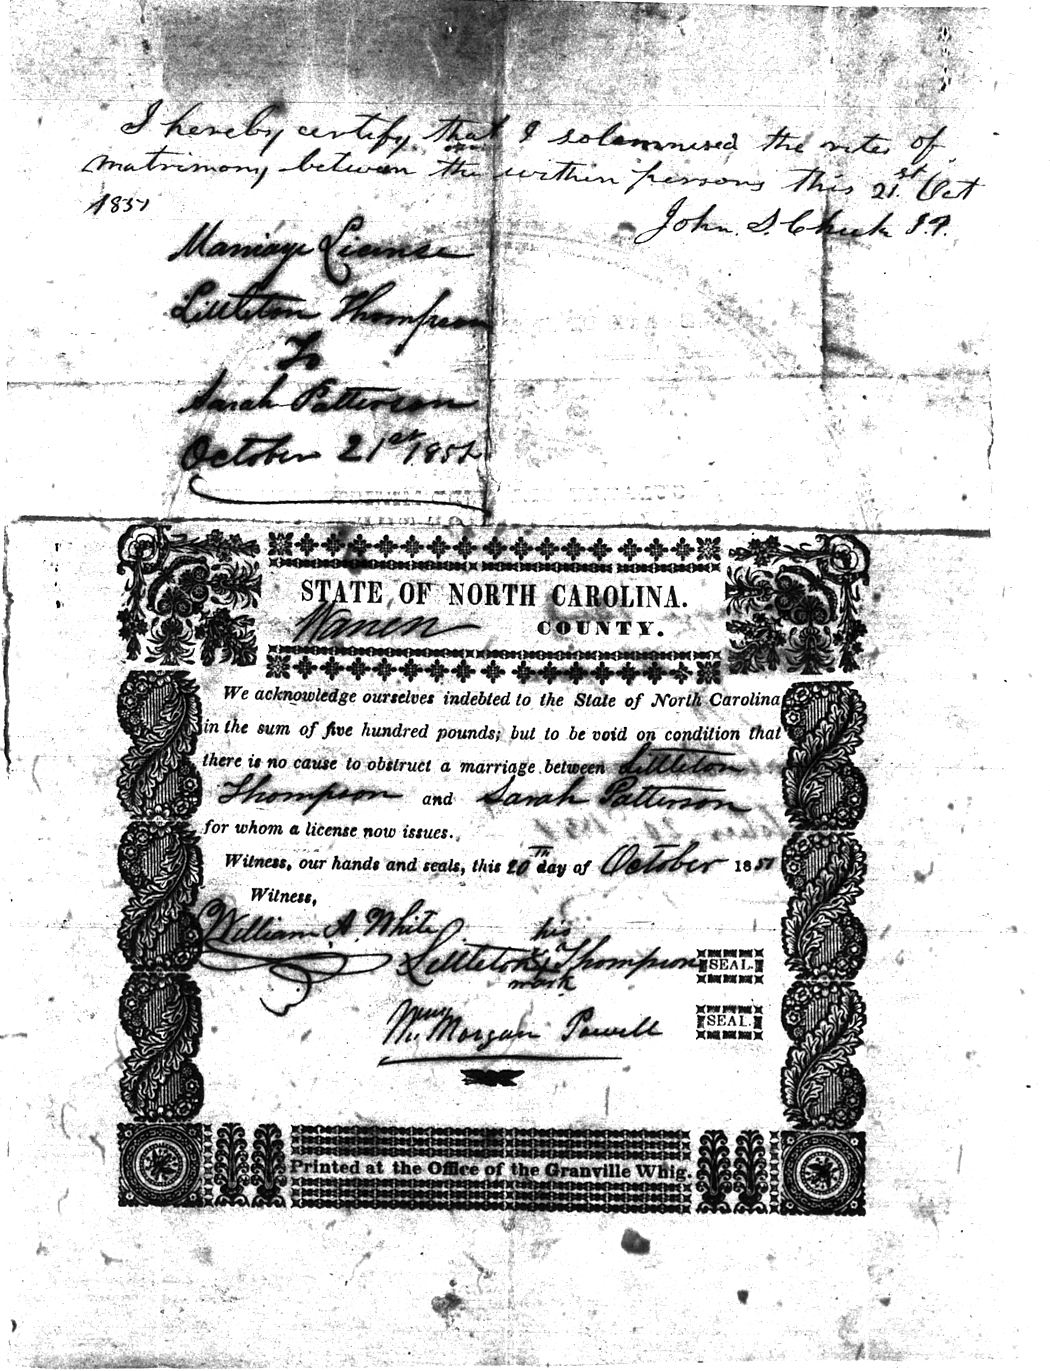 I hereby certify that I solemnised the rites of
matrimony between the within persons this 21.st Oct
1851
John. S. Cheek J.P.
Marriage License
Littleton Thompson
To
Sarah Patterson
October 21st 1851
STATE OF NORTH CAROLINA.
Warren COUNTY.
We acknowledge ourselves indebted to the State of North Carolina
in the sum of five hundred pounds; but to be void on condition that
there is no cause to obstruct a marriage between Littleton
Thompson and Sarah Patterson
for whom a license now issues.
Witness, our hands and seals, this 20th day of October 1851
Witness,
William A. White
his
Littleton X Thompson SEAL.
mark
Morgan Powell SEAL.
Printed at the Office of the Granville Whig.